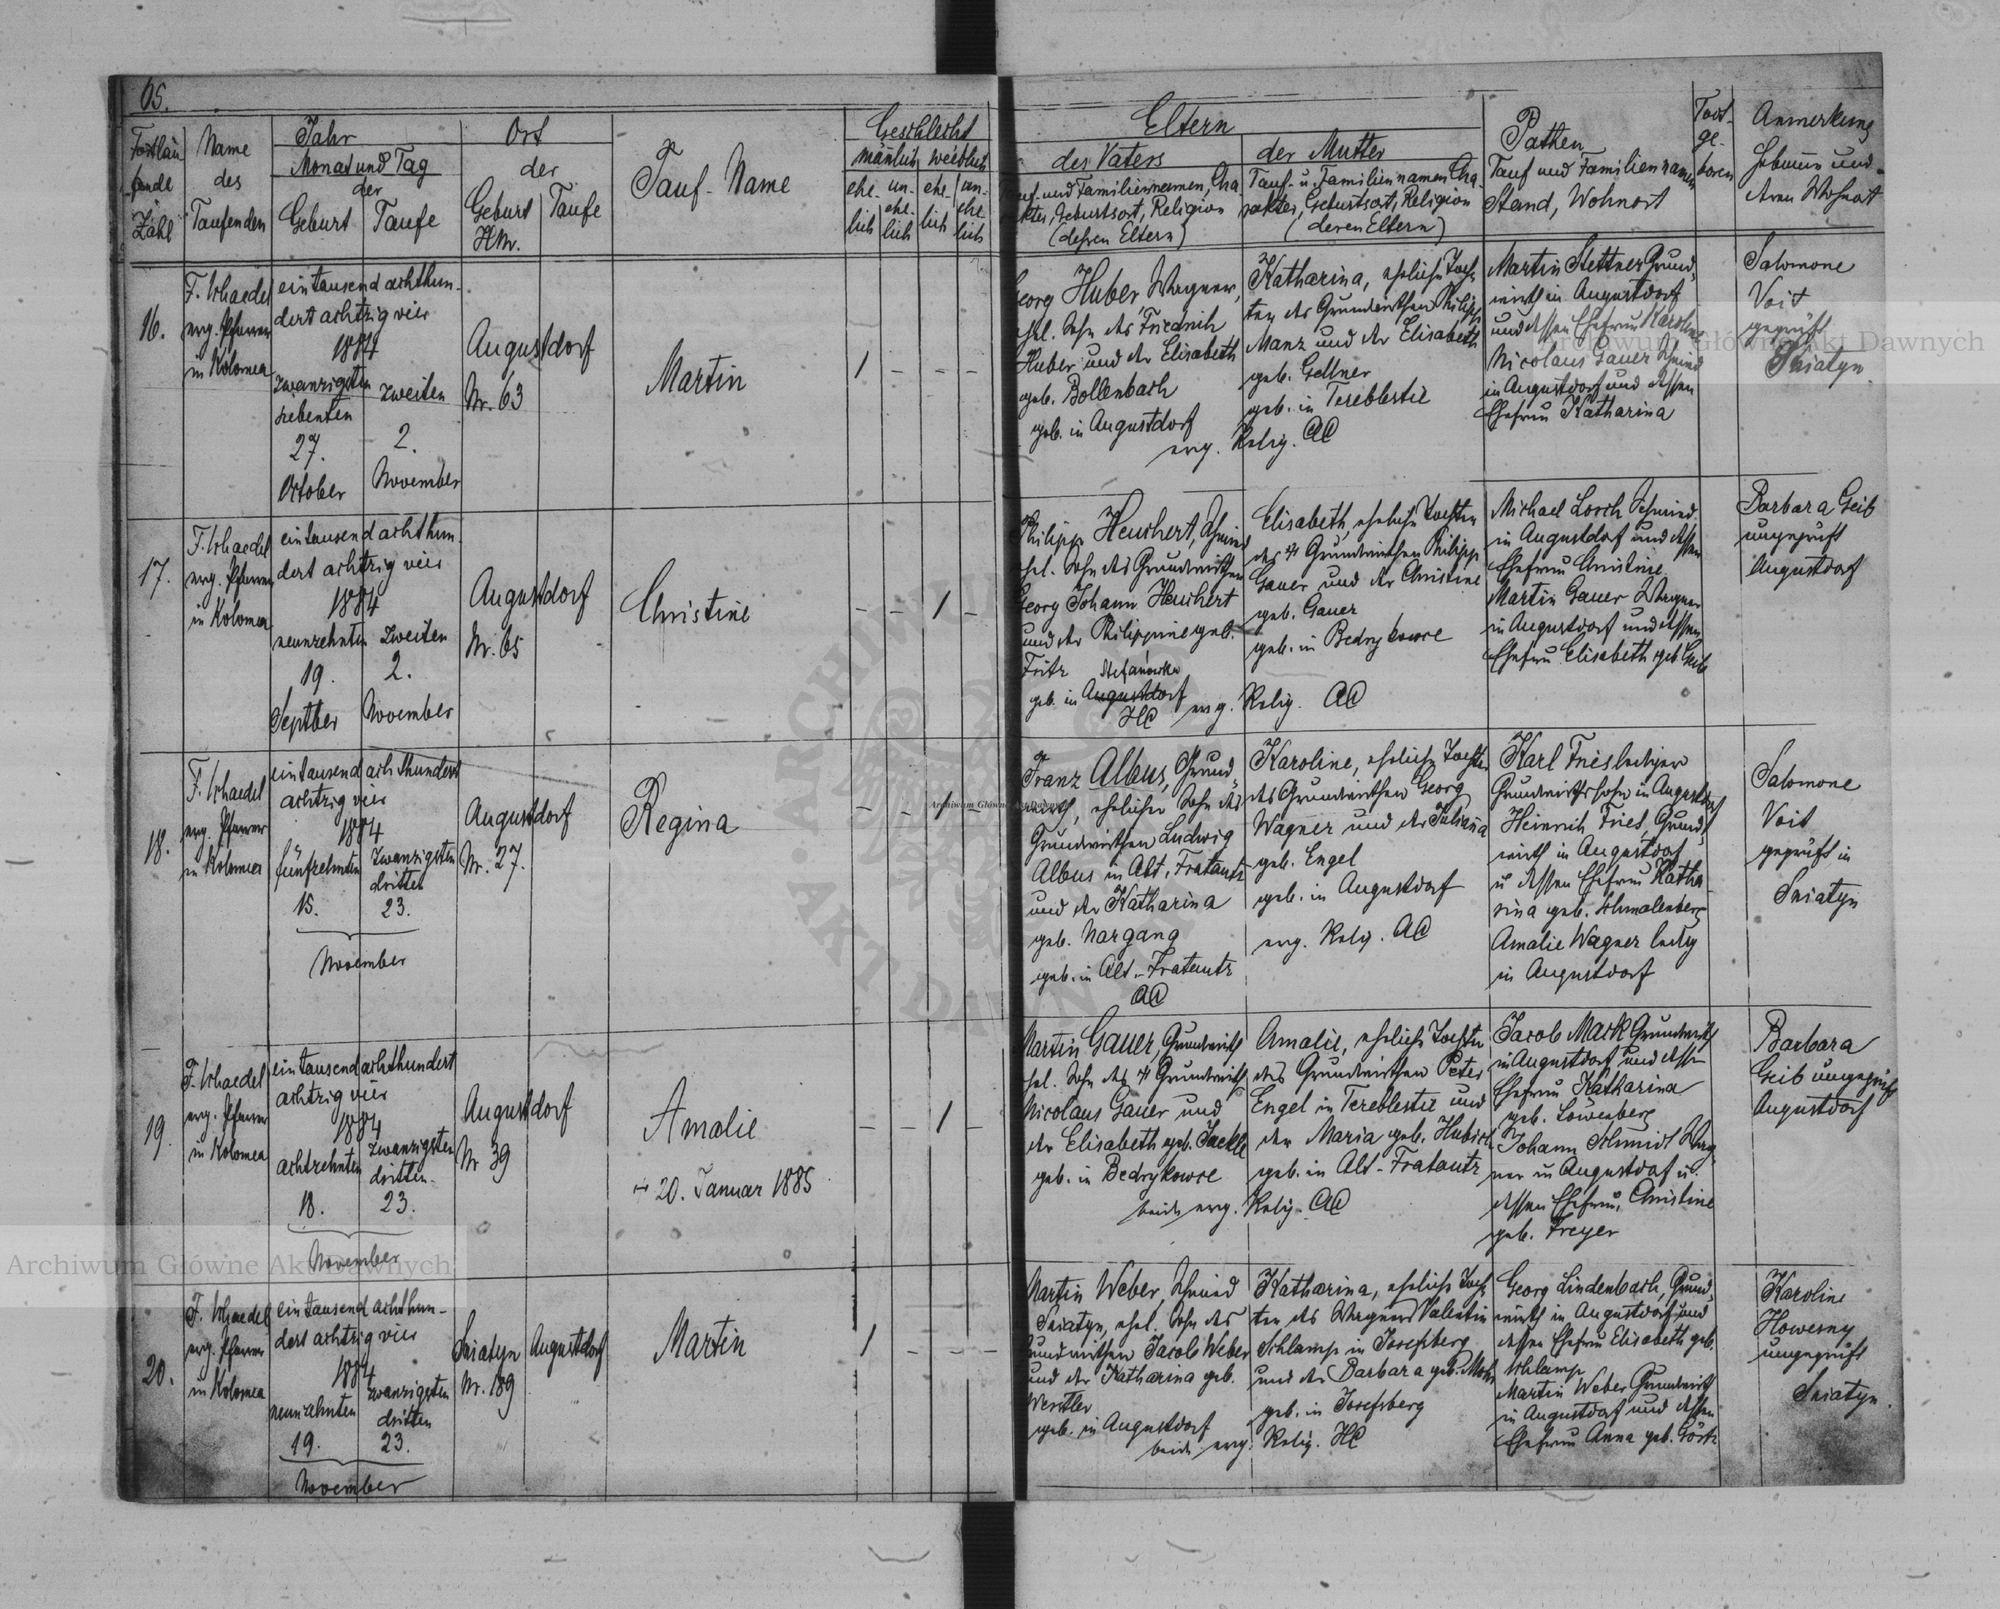 65.
Fortlau
fende
Zahl
Name
des
Taufenden
Jahr
Monat und Tag
der
Geburt
Taufe
Ort
der
Geburt
HNr.
Taufe
Tauf-Name
Geschlecht
mänlich
weiblich
ehe-
lich
un-
ehe-
lich
ehe-
lich
un-
ehe-
lich
Eltern
des Vaters
Tauf- und Familiennamen, Cha
rakter, Geburtsort, Religion
(dessen Eltern)
der Mutter
Tauf- u. Familiennamen Cha-
rakter, Geburtsort, Religion
(deren Eltern)
Pathen
Tauf und Familiennamen
Stand, Wohnort
Todt-
ge-
boren
Anmerkung
Hebamme und
deren Wohnort
16.
F. Schaedel
evg. Pfarrer
in Kolomea
ein tausend achthun-
dert achtzig vier
1884
zwanzigsten
siebenten
27.
October
zweiten
2.
November
Augustdorf
Nr. 63
Martin
1 - - -
Georg Huber Wagner,
ehel. Sohn des Friedrich
Huber und der Elisabeth
geb. Bollenbach
geb. in Augustdorf
Katharina, eheliche Toch-
ter des Grundwirthen Philipp
Manz und der Elisabeth
geb. Gellner
geb. in Tereblestie
evg. Relig. AC
Martin Stettner Grund-
wirth in Augustdorf
und dessen Ehefrau Karoline
Nicolaus Gauer Schmied
in Augustdorf und dessen
Ehefrau Katharina
Salomone
Voit
geprüft
Sniatyn
17.
F. Schaedel
evg. Pfarrer
in Kolomea
ein tausend achthun-
dert achtzig vier
1884
neunzehnten
19.
Septber
zweiten
2.
November
Augustdorf
Nr. 65
Christine
- - 1 -
Philipp Heuchert, Schmied
ehel. Sohn des Grundwirthen
Georg Johann Heuchert
und der Philippine geb.
Fritz
Stefanowka
geb. in Augustdorf
HC
Elisabeth, eheliche Tochter
des + Grundwirthen Philipp
Gauer und der Christine
geb. Gauer
geb. in Bedrykowce
evg. Relig. AC
Michael Lorch Schmied
in Augustdorf und dessen
Ehefrau Christine
Martin Gauer Wagner
in Augustdorf und dessen
Ehefrau Elisabeth geb. Geib
Barbara Geib
ungeprüft
Augustdorf
18.
F. Schaedel
evg. Pfarrer
in Kolomea
ein tausend achthundert
achtzig vier
1884
fünfzehnten
15.
zwanzigsten
dritten
23.
November
Augustdorf
Nr. 27.
Regina
- - 1
Franz Albus, Grund-
wirth, ehelicher Sohn des
Grundwirthen Ludwig
Albus in Alt-Fratautz
und der Katharina
geb. Nargang
geb. in Alt-Fratautz
AC
Karoline, eheliche Tochter
des Grundwirthen Georg
Wagner und der Juliana
geb. Engel
geb. in Augustdorf
evg. Relig. AC
Karl Fries lediger
Grundwirthssohn in Augustdorf
Heinrich Fries, Grund-
wirth in Augustdorf
u dessen Ehefrau Katha-
rina geb. Schmalenberg
Amalie Wagner ledig
in Augustdorf
Salomone
Voit
geprüft in
Sniatyn
19.
F. Schaedel
evg. Pfarrer
in Kolomea
ein tausend achthundert
achtzig vier
1884
achtzehnten
18.
zwanzigsten
dritten
23.
November
Augustdorf
Nr 39
Amalie
+ 20. Januar 1885
- - 1 -
Martin Gauer, Grundwirth
ehel. Sohn des + Grundwirth
Nicolaus Gauer und
der Elisabeth geb. Jackle
geb. in Bedrykowce
Amalie, eheliche Tochter
des Grundwirthen Peter
Engel in Tereblestie und
der Maria geb. Hubich
geb. in Alt-Fratautz
beide evg. Relig. AC
Jacob Mack Grundwirth
in Augustdorf, und dessen
Ehefrau Katharina
geb. Löwenberg
Johann Schmidt Wag-
ner in Augustdorf u.
dessen Ehefrau, Christine
geb. Freyer
Barbara
Geib ungeprüft
Augustdorf
20.
F. Schaedel
evg. Pfarrer
in Kolomea
ein tausend achthun-
dert achtzig vier
1884
neunzehnten
19.
zwanzigsten
dritten
23.
November
Sniatyn
Nr. 189
Augustdorf
Martin
1 - - -
Martin Weber, Schmied
Sniatyn, ehel. Sohn des
Grundwirthen Jacob Weber
und der Katharina geb.
Westler
geb. in Augustdorf
Katharina, eheliche Toch-
ter des Wagners Valentin
Schlamp in Josefsberg
und der Barbara geb. Mohr
geb. in Josefsberg
beide evg. Relig. HC
Georg Lindenbach, Grund-
wirth in Augustdorf und
dessen Ehefrau Elisabeth geb.
Schlamp
Martin Weber Grundwirth
in Augustdorf und dessen
Ehefrau Anna geb. Görtz
Karoline
Howerny
ungeprüft
Sniatyn.
Archiwum Główne Akt Dawnych
Archiwum Główne Akt Dawnych
Archiwum Główne Akt Dawnych
ARCHIWUM
AKT DAWNYCH